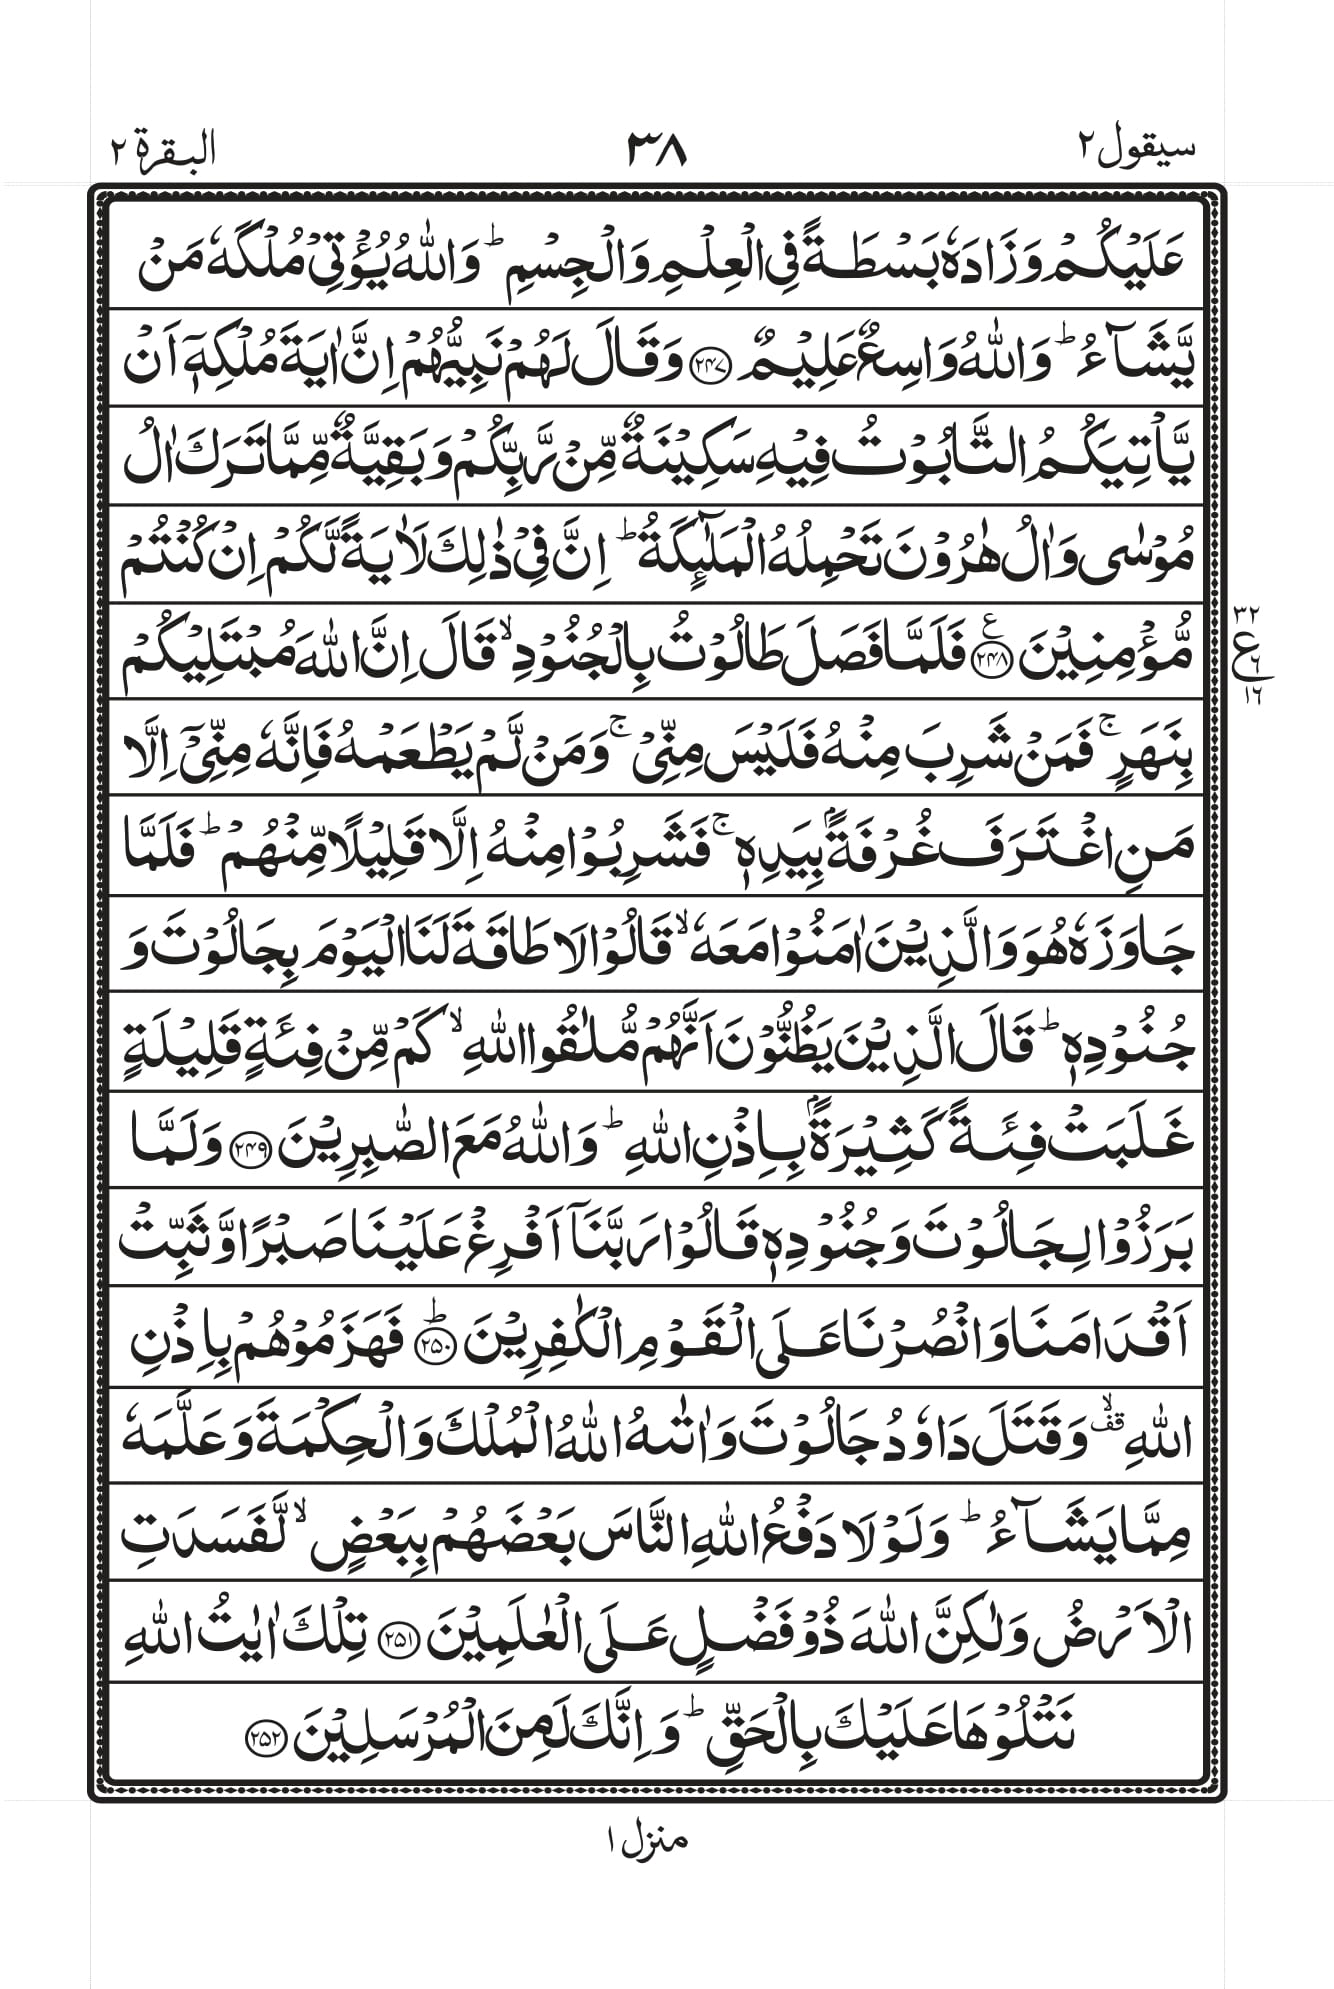 سيقول ٢ ٣٨ البقرة ٢
عَلَيۡكُمۡ وَزَادَهٗ بَسۡطَةً فِى الۡعِلۡمِ وَالۡجِسۡمِ ؕ وَاللّٰهُ يُؤۡتِىۡ مُلۡكَهٗ مَنۡ
يَّشَآءُ ؕ وَاللّٰهُ وَاسِعٌ عَلِيۡمٌ ﴿۲۴۷﴾ وَقَالَ لَهُمۡ نَبِيُّهُمۡ اِنَّ اٰيَةَ مُلۡكِهٖۤ اَنۡ
يَّاۡتِيَكُمُ التَّابُوۡتُ فِيۡهِ سَكِيۡنَةٌ مِّنۡ رَّبِّكُمۡ وَبَقِيَّةٌ مِّمَّا تَرَكَ اٰلُ
مُوۡسٰى وَاٰلُ هٰرُوۡنَ تَحۡمِلُهُ الۡمَلٰٓٮِٕكَةُ ؕ اِنَّ فِىۡ ذٰلِكَ لَاٰيَةً لَّكُمۡ اِنۡ كُنۡتُمۡ
مُّؤۡمِنِيۡنَ ﴿۲۴۸﴾ ع فَلَمَّا فَصَلَ طَالُوۡتُ بِالۡجُنُوۡدِ ۙ قَالَ اِنَّ اللّٰهَ مُبۡتَلِيۡكُمۡ
٣٢
ع
٦
١٦
بِنَهَرٍ ۚ فَمَنۡ شَرِبَ مِنۡهُ فَلَيۡسَ مِنِّىۡ ۚ وَمَنۡ لَّمۡ يَطۡعَمۡهُ فَاِنَّهٗ مِنِّىۡٓ اِلَّا
مَنِ اغۡتَرَفَ غُرۡفَةًۢ بِيَدِهٖ ۚ فَشَرِبُوۡا مِنۡهُ اِلَّا قَلِيۡلًا مِّنۡهُمۡ ؕ فَلَمَّا
جَاوَزَهٗ هُوَ وَالَّذِيۡنَ اٰمَنُوۡا مَعَهٗ ۙ قَالُوۡا لَا طَاقَةَ لَنَا الۡيَوۡمَ بِجَالُوۡتَ وَ
جُنُوۡدِهٖ ؕ قَالَ الَّذِيۡنَ يَظُنُّوۡنَ اَنَّهُمۡ مُّلٰقُوا اللّٰهِ ۙ كَمۡ مِّنۡ فِئَةٍ قَلِيۡلَةٍ
غَلَبَتۡ فِئَةً كَثِيۡرَةًۢ بِاِذۡنِ اللّٰهِ ؕ وَاللّٰهُ مَعَ الصّٰبِرِيۡنَ ﴿۲۴۹﴾ وَلَمَّا
بَرَزُوۡا لِجَالُوۡتَ وَجُنُوۡدِهٖ قَالُوۡا رَبَّنَآ اَفۡرِغۡ عَلَيۡنَا صَبۡرًا وَّثَبِّتۡ
اَقۡدَامَنَا وَانۡصُرۡنَا عَلَى الۡقَوۡمِ الۡكٰفِرِيۡنَ ؕ ﴿۲۵۰﴾ فَهَزَمُوۡهُمۡ بِاِذۡنِ
اللّٰهِ ۙقف وَقَتَلَ دَاوٗدُ جَالُوۡتَ وَاٰتٰٮهُ اللّٰهُ الۡمُلۡكَ وَالۡحِكۡمَةَ وَعَلَّمَهٗ
مِمَّا يَشَآءُ ؕ وَلَوۡلَا دَفۡعُ اللّٰهِ النَّاسَ بَعۡضَهُمۡ بِبَعۡضٍ ۙ لَّفَسَدَتِ
الۡاَرۡضُ وَلٰكِنَّ اللّٰهَ ذُوۡ فَضۡلٍ عَلَى الۡعٰلَمِيۡنَ ﴿۲۵۱﴾ تِلۡكَ اٰيٰتُ اللّٰهِ
نَتۡلُوۡهَا عَلَيۡكَ بِالۡحَقِّ ؕ وَاِنَّكَ لَمِنَ الۡمُرۡسَلِيۡنَ ﴿۲۵۲﴾
منزل ١